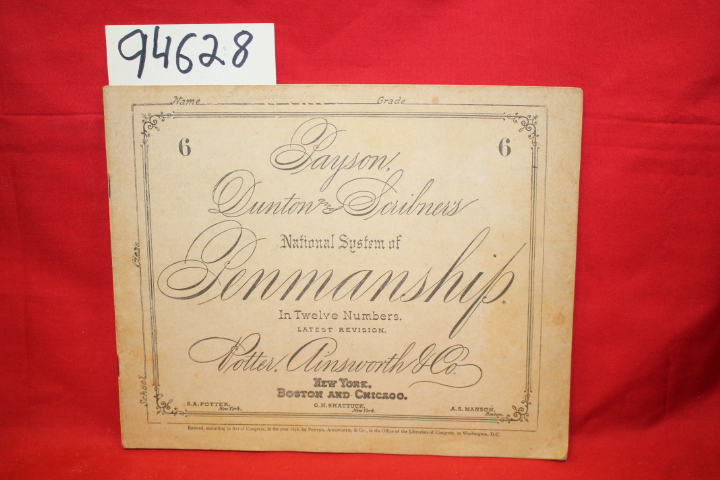 94628
Name Grade
6 6
Payson,
Dunton and Scribner's
National System of
Penmanship.
In Twelve Numbers.
LATEST REVISION.
Potter, Ainsworth & Co.
NEW YORK,
BOSTON AND CHICAGO.
S.A. POTTER, New York.
G.H. SHATTUCK, New York.
A.S. MANSON, Boston.
Class
School
Entered, according to Act of Congress, in the year by POTTER, AINSWORTH, & CO., in the Office of the Librarian of Congress, at Washington, D.C.